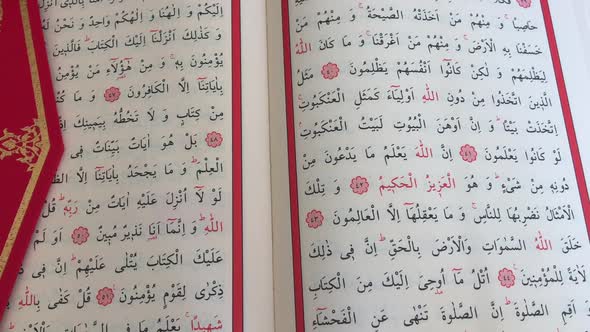 فَكُلًّا
حَاصِبًا وَ مِنْهُمْ مَنْ اَخَذَتْهُ الصَّيْحَةُ وَ مِنْهُمْ مَنْ
خَسَفْنَا بِهِ الْاَرْضَ وَ مِنْهُمْ مَنْ اَغْرَقْنَا وَ مَا كَانَ اللّٰهُ
لِيَظْلِمَهُمْ وَ لٰكِنْ كَانُٓوا اَنْفُسَهُمْ يَظْلِمُونَ ﴿٤٠﴾ مَثَلُ
الَّذِينَ اتَّخَذُوا مِنْ دُونِ اللّٰهِ اَوْلِيَٓاءَ كَمَثَلِ الْعَنْكَبُوتِ
اِتَّخَذَتْ بَيْتًا وَ اِنَّ اَوْهَنَ الْبُيُوتِ لَبَيْتُ الْعَنْكَبُوتِ
لَوْ كَانُوا يَعْلَمُونَ ﴿٤١﴾ اِنَّ اللّٰهَ يَعْلَمُ مَا يَدْعُونَ مِنْ
دُونِهِ مِنْ شَيْءٍ وَ هُوَ الْعَزِيزُ الْحَكِيمُ ﴿٤٢﴾ وَ تِلْكَ
الْاَمْثَالُ نَضْرِبُهَا لِلنَّاسِ وَ مَا يَعْقِلُهَٓا اِلَّا الْعَالِمُونَ ﴿٤٣﴾
خَلَقَ اللّٰهُ السَّمٰوَاتِ وَالْاَرْضَ بِالْحَقِّ اِنَّ فِى ذٰلِكَ
لَاٰيَةً لِلْمُؤْمِنِينَ ﴿٤٤﴾ اُتْلُ مَٓا اُوحِىَ اِلَيْكَ مِنَ الْكِتَابِ
وَ اَقِمِ الصَّلٰوةَ اِنَّ الصَّلٰوةَ تَنْهٰى عَنِ الْفَحْشَٓاءِ
اِلَيْكُمْ وَ اِلٰهُنَا وَ اِلٰهُكُمْ وَاحِدٌ وَ نَحْنُ لَهُ
وَ كَذٰلِكَ اَنْزَلْنَٓا اِلَيْكَ الْكِتَابَ فَالَّذِينَ
يُؤْمِنُونَ بِهِ وَ مِنْ هٰٓؤُلَٓاءِ مَنْ يُؤْمِنُ
بِاٰيَاتِنَٓا اِلَّا الْكَافِرُونَ ﴿٤٧﴾ وَ مَا كُنْتَ
مِنْ كِتَابٍ وَ لَا تَخُطُّهُ بِيَمِينِكَ
﴿٤٨﴾ بَلْ هُوَ اٰيَاتٌ بَيِّنَاتٌ فِى
الْعِلْمَ وَ مَا يَجْحَدُ بِاٰيَاتِنَٓا اِلَّا
لَوْ لَٓا اُنْزِلَ عَلَيْهِ اٰيَاتٌ مِنْ رَبِّهِ قُلْ
اللّٰهِ وَ اِنَّمَٓا اَنَا۬ نَذِيرٌ مُبِينٌ ﴿٥٠﴾ اَوَ لَمْ
عَلَيْكَ الْكِتَابَ يُتْلٰى عَلَيْهِمْ اِنَّ فِى
ذِكْرٰى لِقَوْمٍ يُؤْمِنُونَ ﴿٥١﴾ قُلْ كَفٰى بِاللّٰهِ
شَهِيدًا يَعْلَمُ مَا فِى السَّمٰوَاتِ